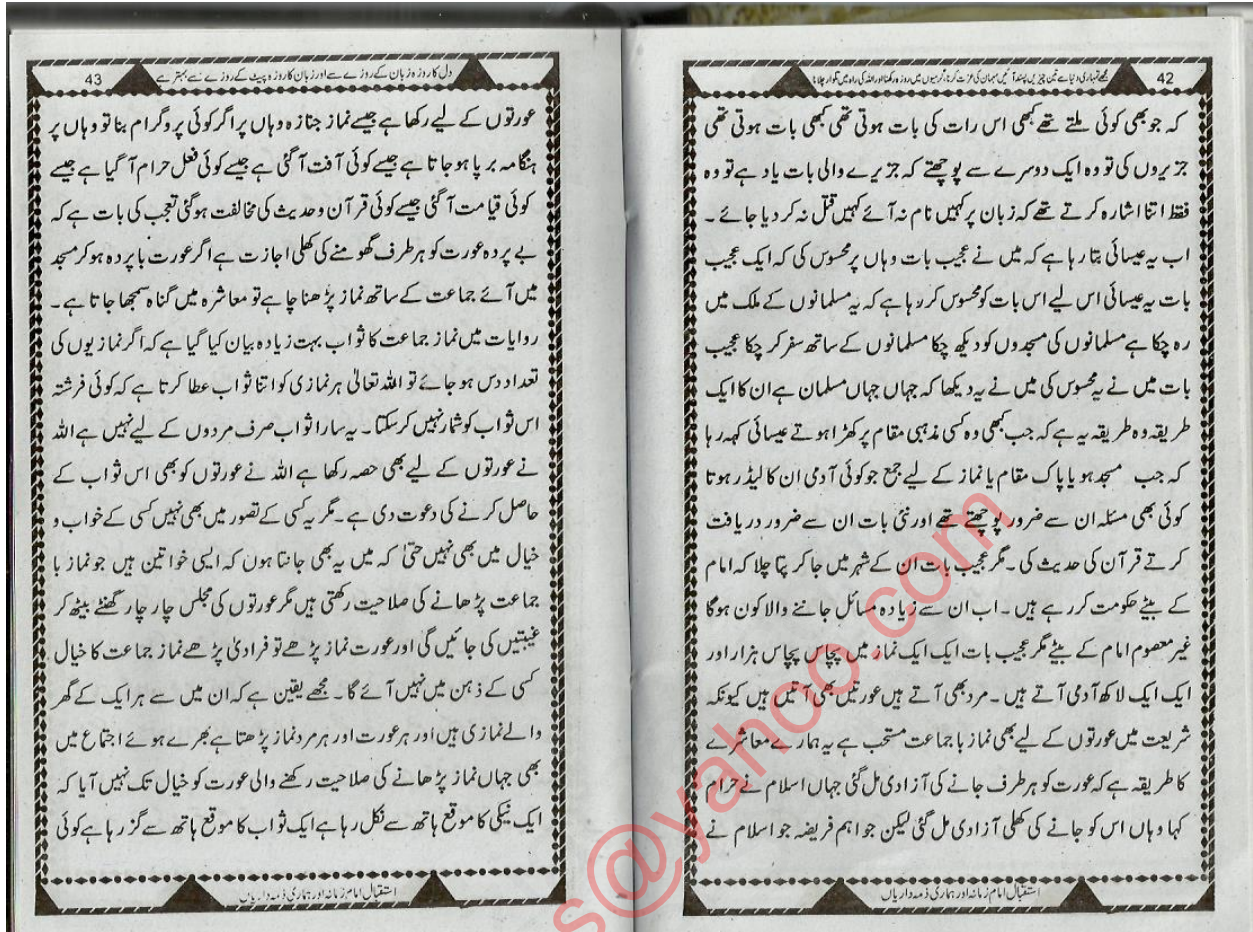 42
مجھے تمہاری دنیا سے تین چیزیں پسند آئیں مہمان کی عزت کرنا، گرمیوں میں روزہ رکھنا اور اللہ کی راہ میں تلوار چلانا
کہ جو بھی کوئی ملتے تھے کبھی اس رات کی بات ہوتی تھی کبھی بات ہوتی تھی
جزیروں کی تو وہ ایک دوسرے سے پوچھتے کہ جزیرے والی بات یاد ہے تو وہ
فقط اتنا اشارہ کرتے تھے کہ زبان پر کہیں نام نہ آئے کہیں قتل نہ کر دیا جائے ۔
اب یہ عیسائی بتا رہا ہے کہ میں نے عجیب بات وہاں پر محسوس کی کہ ایک عجیب
بات یہ عیسائی اس لیے اس بات کو محسوس کر رہا ہے کہ یہ مسلمانوں کے ملک میں
رہ چکا ہے مسلمانوں کی مسجدوں کو دیکھ چکا مسلمانوں کے ساتھ سفر کر چکا عجیب
بات میں نے یہ محسوس کی میں نے یہ دیکھا کہ جہاں جہاں مسلمان ہے ان کا ایک
طریقہ وہ طریقہ یہ ہے کہ جب کبھی وہ کسی مذہبی مقام پر کھڑا ہوتے عیسائی کہہ رہا
کہ جب مسجد ہو یا پاک مقام یا نماز کے لیے جمع جو کوئی آدمی ان کا لیڈر ہوتا
کوئی بھی مسئلہ ان سے ضرور پوچھتے تھے اور نئی بات ان سے ضرور دریافت
کرتے قرآن کی حدیث کی ۔ مگر عجیب بات ان کے شہر میں جا کر پتا چلا کہ امام
کے بیٹے حکومت کر رہے ہیں ۔ اب ان سے زیادہ مسائل جاننے والا کون ہوگا
غیر معصوم امام کے بیٹے مگر عجیب بات ایک ایک نماز میں پچاس پچاس ہزار اور
ایک ایک لاکھ آدمی آتے ہیں ۔ مرد بھی آتے ہیں عورتیں بھی آتیں ہیں کیونکہ
شریعت میں عورتوں کے لیے بھی نماز با جماعت مستحب ہے یہ ہمارے معاشرے
کا طریقہ ہے کہ عورت کو ہر طرف جانے کی آزادی مل گئی جہاں اسلام نے حرام
کہا وہاں اس کو جانے کی کھلی آزادی مل گئی لیکن جو اہم فریضہ جو اسلام نے
استقبال امام زمانہ اور ہماری ذمہ داریاں
43
دل کا روزہ زبان کے روزے سے اور زبان کا روزہ پیٹ کے روزے سے بہتر ہے
عورتوں کے لیے رکھا ہے جیسے نماز جنازہ وہاں پر اگر کوئی پروگرام بنا تو وہاں پر
ہنگامہ برپا ہو جاتا ہے جیسے کوئی آفت آ گئی ہے جیسے کوئی فعل حرام آ گیا ہے جیسے
کوئی قیامت آ گئی جیسے کوئی قرآن و حدیث کی مخالفت ہو گئی تعجب کی بات ہے کہ
بے پردہ عورت کو ہر طرف گھومنے کی کھلی اجازت ہے اگر عورت با پردہ ہو کر مسجد
میں آئے جماعت کے ساتھ نماز پڑھنا چاہے تو معاشرہ میں گناہ سمجھا جاتا ہے ۔
روایات میں نماز جماعت کا ثواب بہت زیادہ بیان کیا گیا ہے کہ اگر نمازیوں کی
تعداد دس ہو جائے تو اللہ تعالٰی ہر نمازی کو اتنا ثواب عطا کرتا ہے کہ کوئی فرشتہ
اس ثواب کو شمار نہیں کر سکتا ۔ یہ سارا ثواب صرف مردوں کے لیے نہیں ہے اللہ
نے عورتوں کے لیے بھی حصہ رکھا ہے اللہ نے عورتوں کو بھی اس ثواب کے
حاصل کرنے کی دعوت دی ہے ۔ مگر یہ کسی کے تصور میں بھی نہیں کسی کے خواب و
خیال میں بھی نہیں حتیٰ کہ میں یہ بھی جانتا ہوں کہ ایسی خواتین ہیں جو نماز با
جماعت پڑھانے کی صلاحیت رکھتی ہیں مگر عورتوں کی مجلس چار چار گھنٹے بیٹھ کر
غیبتیں کی جائیں گی اور عورت نماز پڑھے تو فرادیٰ پڑھے نماز جماعت کا خیال
کسی کے ذہن میں نہیں آئے گا ۔ مجھے یقین ہے کہ ان میں سے ہر ایک کے گھر
والے نمازی ہیں اور ہر عورت اور ہر مرد نماز پڑھتا ہے بھرے ہوئے اجتماع میں
بھی جہاں نماز پڑھانے کی صلاحیت رکھنے والی عورت کو خیال تک نہیں آیا کہ
ایک نیکی کا موقع ہاتھ سے نکل رہا ہے ایک ثواب کا موقع ہاتھ سے گزر رہا ہے کوئی
استقبال امام زمانہ اور ہماری ذمہ داریاں
s@yahoo.com